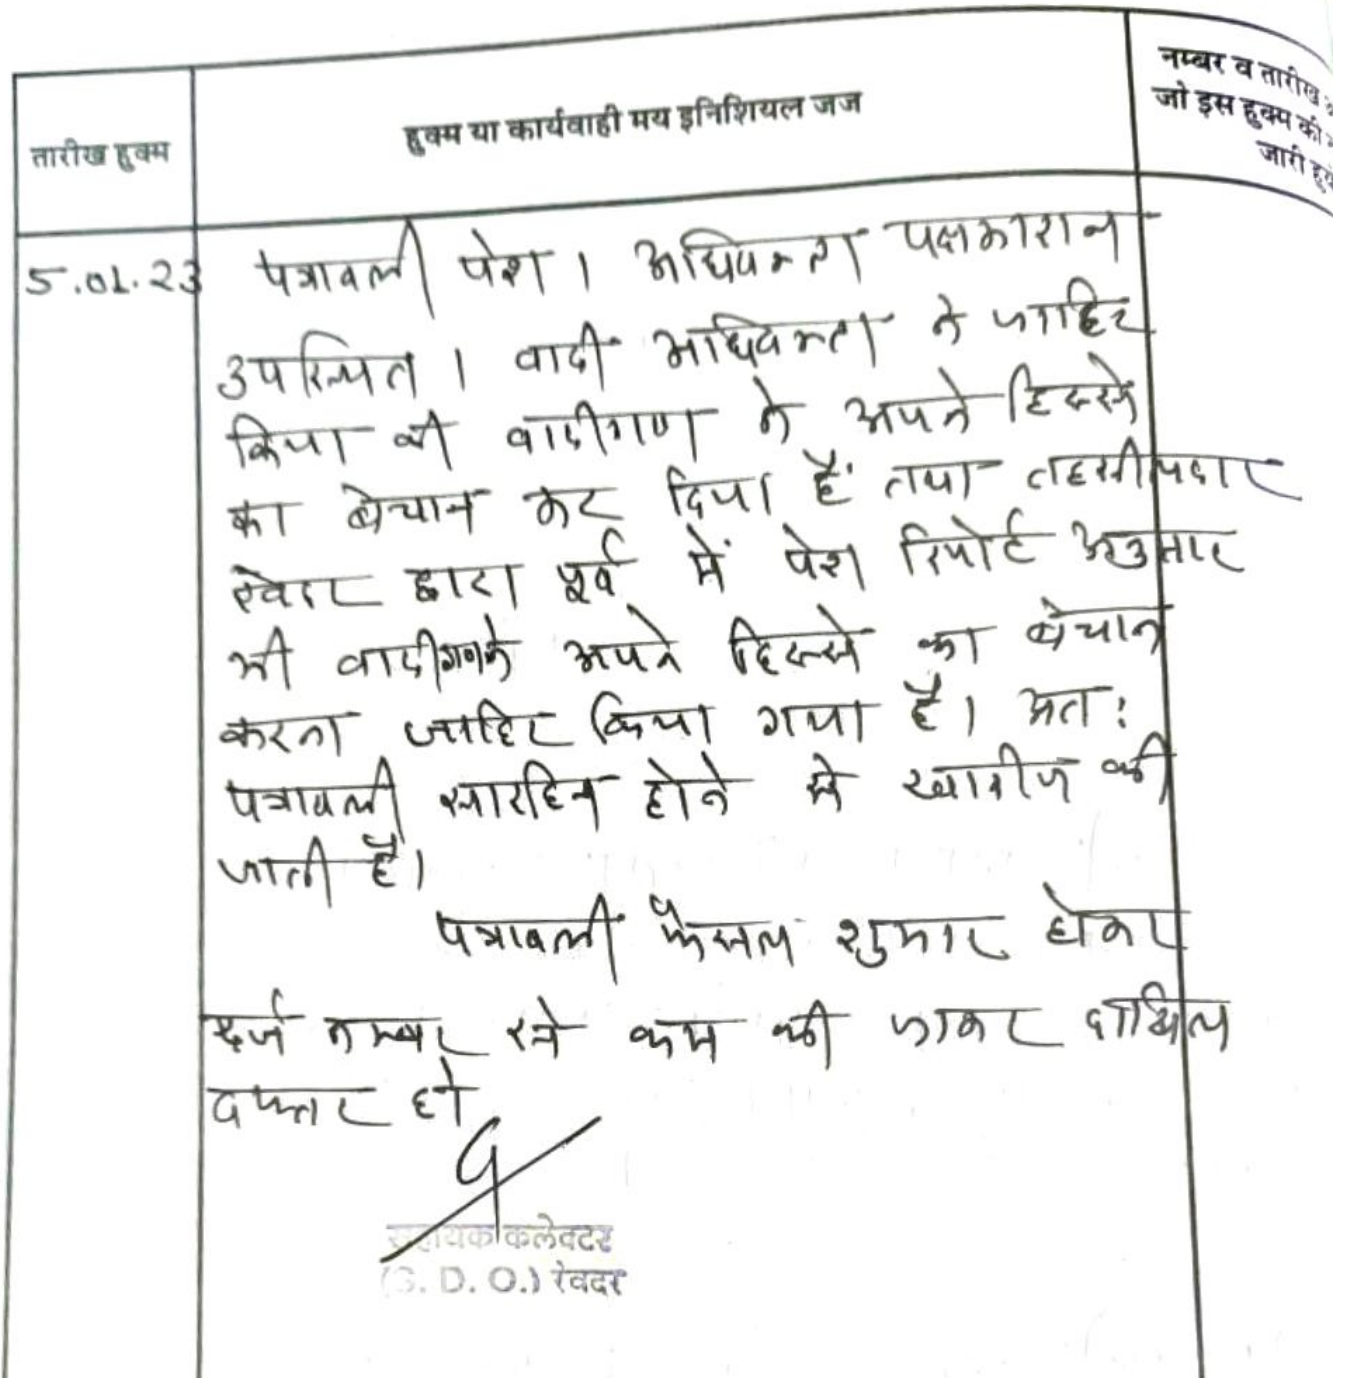 तारीख हुक्म
हुक्म या कार्यवाही मय इनिशियल जज
नम्बर व तारीख
जो इस हुक्म की
जारी हुये
5.01.23
पत्रावली पेश। अधिवक्ता पक्षकारान
उपस्थित। वादी अधिवक्ता ने जाहिर
किया की वादीगण ने अपने हिस्से
का बेचान कर दिया हैं तथा तहसीलदार
रेवदर द्वारा पूर्व में पेश रिपोर्ट अनुसार
भी वादीगणके अपने हिस्से का बेचान
करना जाहिर किया गया है। अतः
पत्रावली सारहिन होने से खारीज की
जाती है।
पत्रावली फैसल शुमार होकर
दर्ज नम्बर से कम की जाकर दाखिल
दफ्तर हो
सहायक कलेक्टर
(S. D. O.) रेवदर